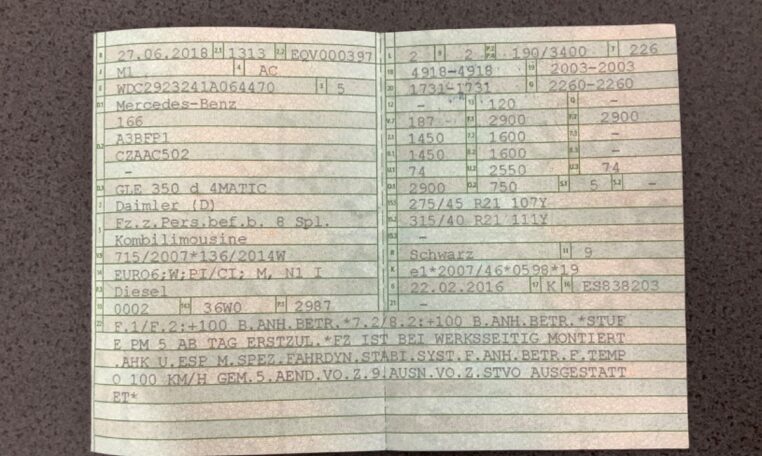 B 27.06.2018 2.1 1313 2.2 EQV000397
J M1 4 AC
E WDC2923241A064470 3 5
D.1 Mercedes-Benz
166
D.2 A3BFP1
CZAAC502
-
D.3 GLE 350 d 4MATIC
2 Daimler (D)
5 Fz.z.Pers.bef.b. 8 Spl.
Kombilimousine
V.9 715/2007*136/2014W
14 EURO6;W;PI/CI; M, N1 I
P.3 Diesel
10 0002 14.1 36W0 P.1 2987
L 2 9 2 P.2/P.4 190/3400 T 226
18 4918-4918 19 2003-2003
20 1731-1731 G 2260-2260
12 - 13 120 Q -
V.7 187 F.1 2900 F.2 2900
7.1 1450 7.2 1600 7.3 -
8.1 1450 8.2 1600 8.3 -
U.1 74 U.2 2550 U.3 74
O.1 2900 O.2 750 S.1 5 S.2 -
15.1 275/45 R21 107Y
15.2 315/40 R21 111Y
15.3 -
R Schwarz 11 9
K e1*2007/46*0598*19
6 22.02.2016 17 K 16 ES838203
21 -
22 F.1/F.2:+100 B.ANH.BETR.*7.2/8.2:+100 B.ANH.BETR.*STUF
E PM 5 AB TAG ERSTZUL.*FZ IST BEI WERKSSEITIG MONTIERT
.AHK U.ESP M.SPEZ.FAHRDYN.STABI.SYST.F.ANH.BETR.F.TEMP
O 100 KM/H GEM.5.AEND.VO.Z.9.AUSN.VO.Z.STVO AUSGESTATT
ET*